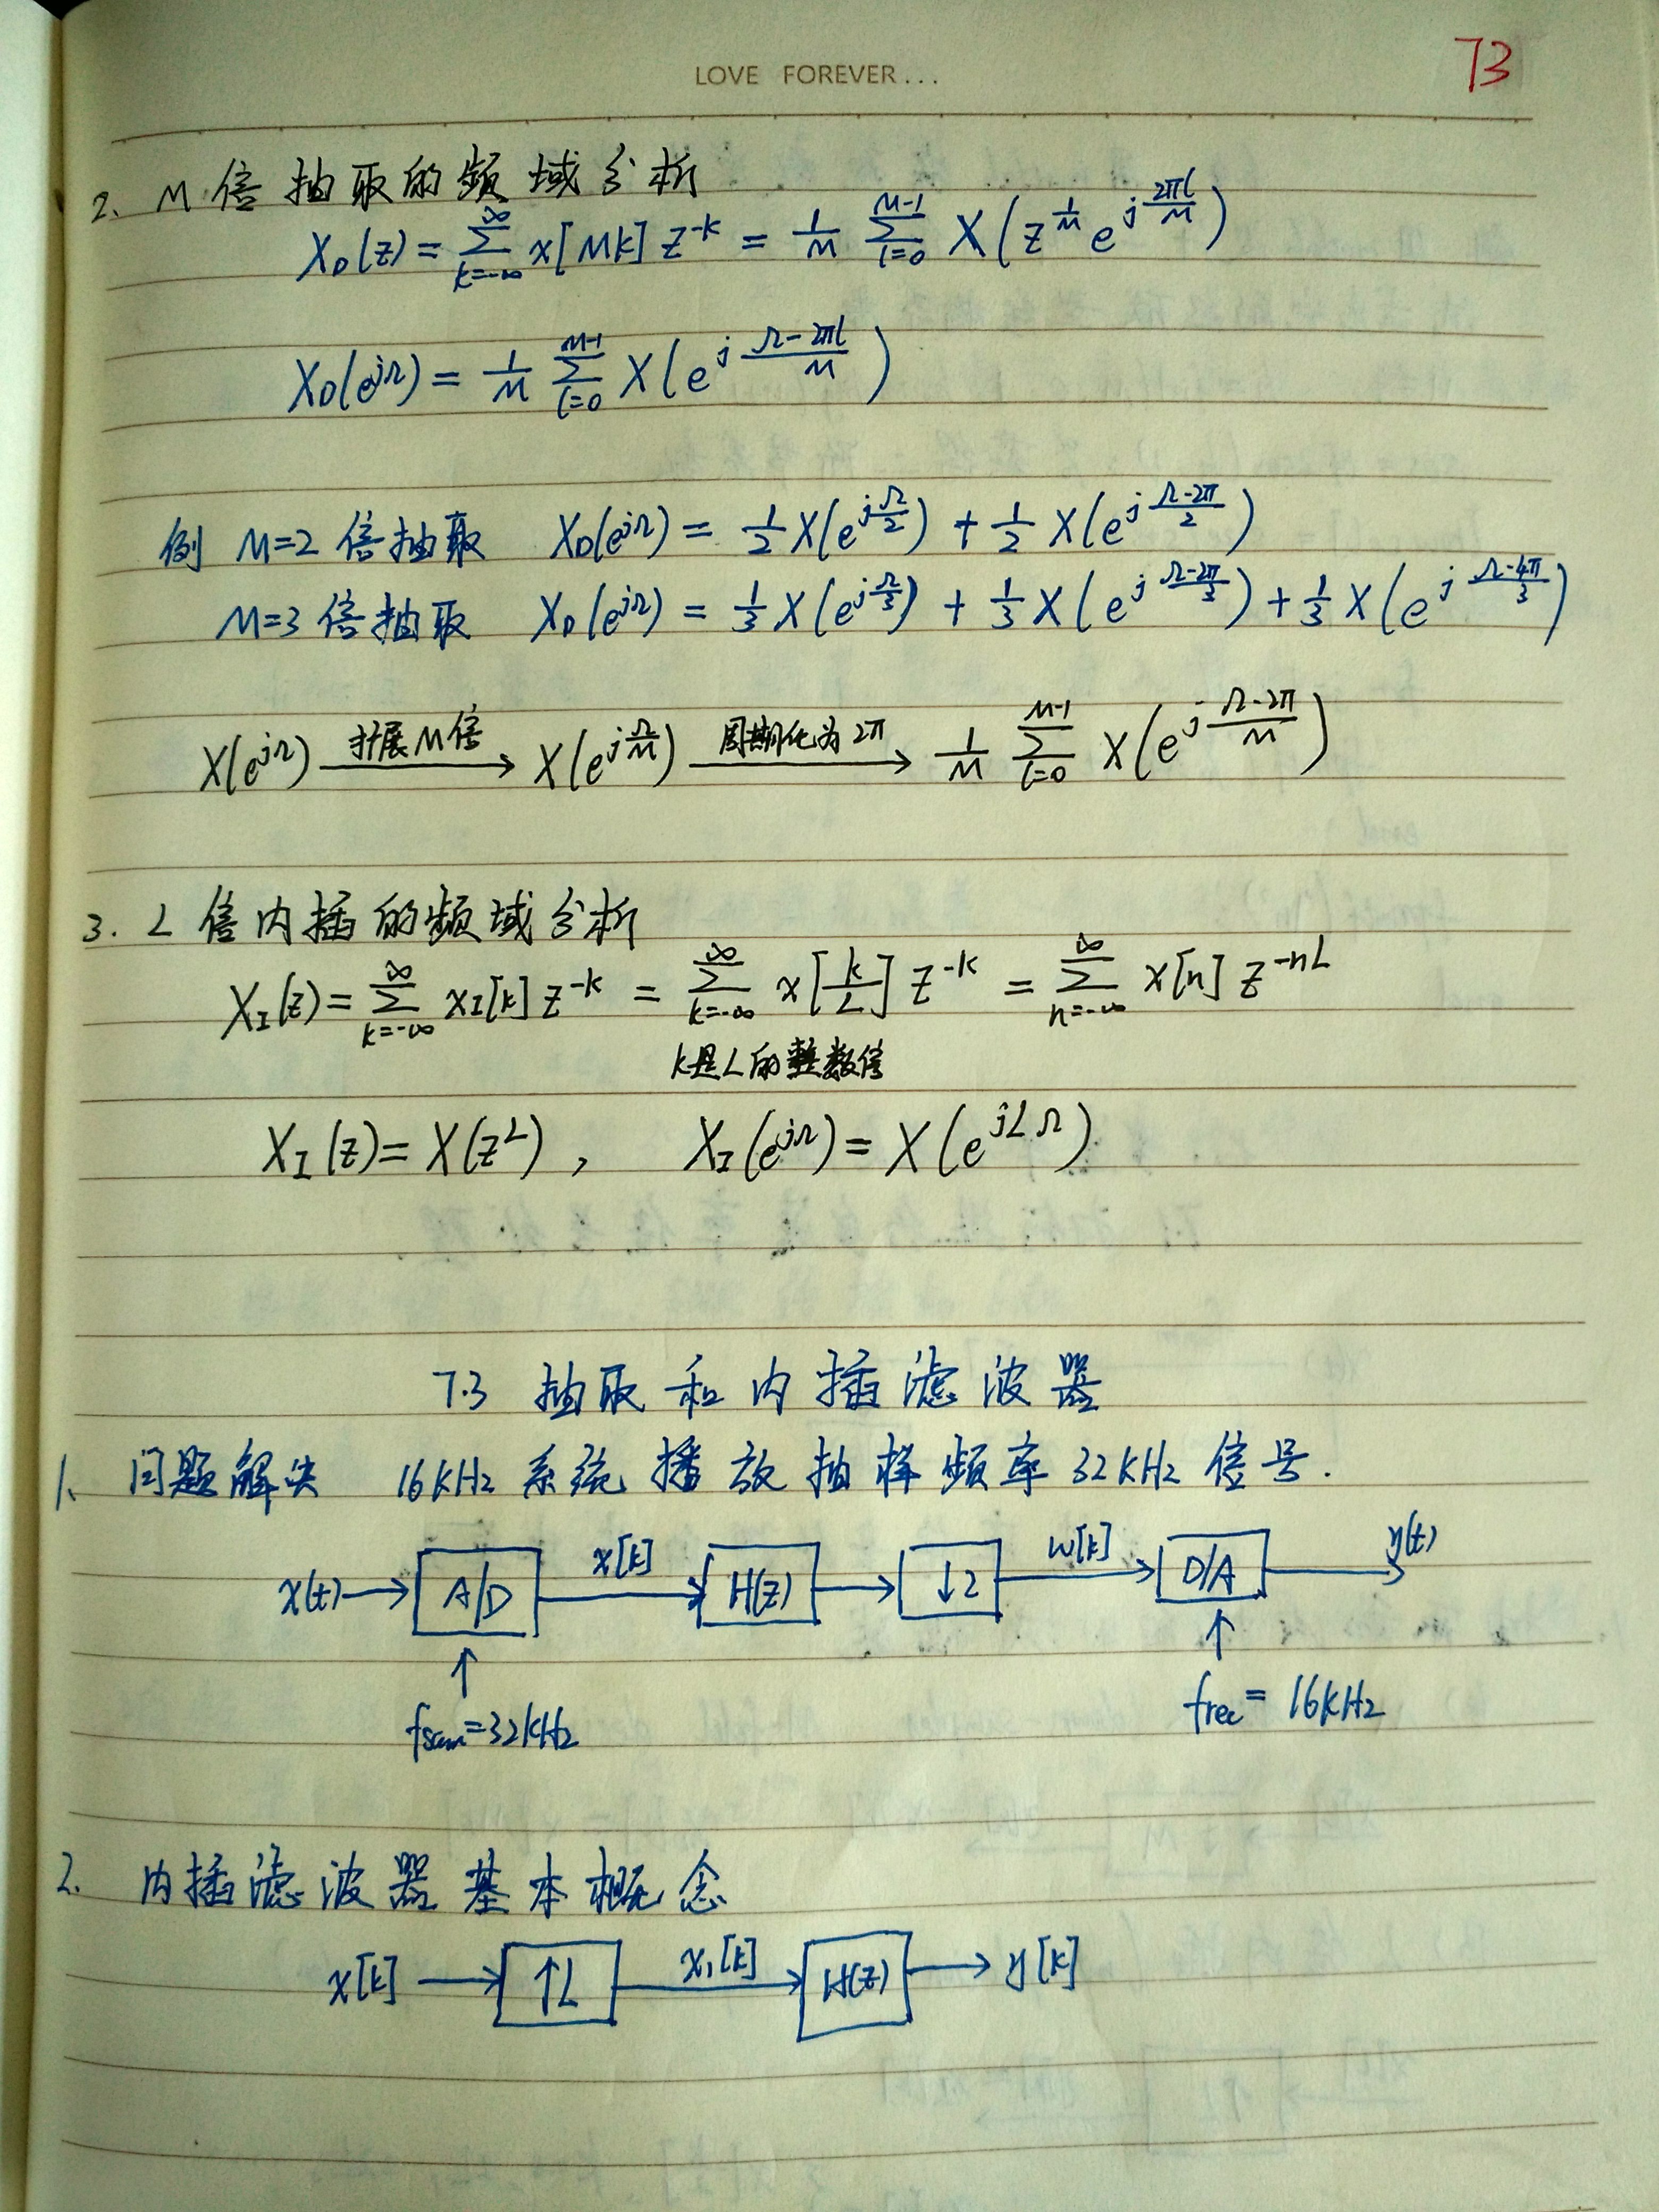 LOVE FOREVER...
73
2. M倍抽取的频域分析
X_D(z) = \sum_{k=-∞}^{∞} x[Mk] z^{-k} = \frac{1}{M} \sum_{l=0}^{M-1} X(z^{\frac{1}{M}} e^{j\frac{2πl}{M}})
X_D(e^{jΩ}) = \frac{1}{M} \sum_{l=0}^{M-1} X(e^{j\frac{Ω-2πl}{M}})
例 M=2倍抽取 X_D(e^{jΩ}) = \frac{1}{2}X(e^{j\frac{Ω}{2}}) + \frac{1}{2}X(e^{j\frac{Ω-2π}{2}})
M=3倍抽取 X_D(e^{jΩ}) = \frac{1}{3}X(e^{j\frac{Ω}{3}}) + \frac{1}{3}X(e^{j\frac{Ω-2π}{3}}) + \frac{1}{3}X(e^{j\frac{Ω-4π}{3}})
X(e^{jΩ}) 扩展M倍→ X(e^{j\frac{Ω}{M}}) 周期化为2π→ \frac{1}{M} \sum_{l=0}^{M-1} X(e^{j\frac{Ω-2π}{M}})
3. L倍内插的频域分析
X_I(z) = \sum_{k=-∞}^{∞} x_I[k] z^{-k} = \sum_{k=-∞}^{∞} x[\frac{k}{L}] z^{-k} = \sum_{n=-∞}^{∞} x[n] z^{-nL}
k是L的整数倍
X_I(z) = X(z^L), X_I(e^{jΩ}) = X(e^{jLΩ})
7.3 抽取和内插滤波器
1. 问题解决 16kHz系统播放抽样频率32kHz信号.
x(t) → A/D x[k] → H(z) → ↓2 w[k] → D/A → y(t)
↑ ↑
fsam=32kHz frec=16kHz
2. 内插滤波器基本概念
x[k] → ↑L x_I[k] → H(z) → y[k]